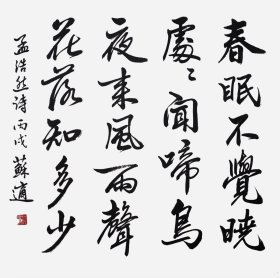 春眠不覺曉
處〻聞啼鳥
夜来風雨聲
花落知多少
孟浩然诗丙戌蘇適